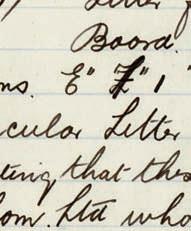 Letter f
Board.
ns. E" F" 1 "
cular Letter
ting that thes
om. Ltd who